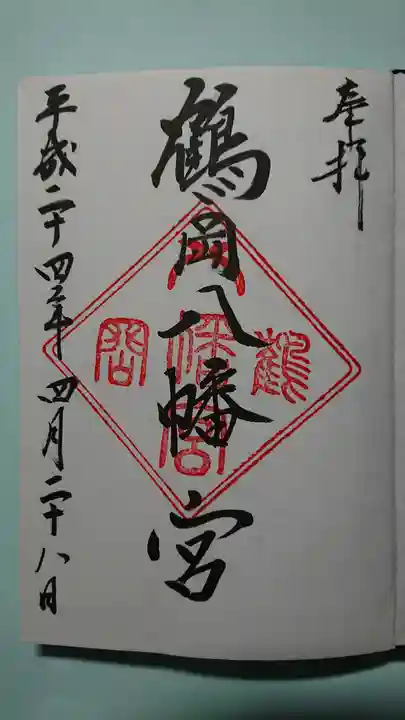 奉拝
鶴岡八幡宮
平成二十四年四月二十八日